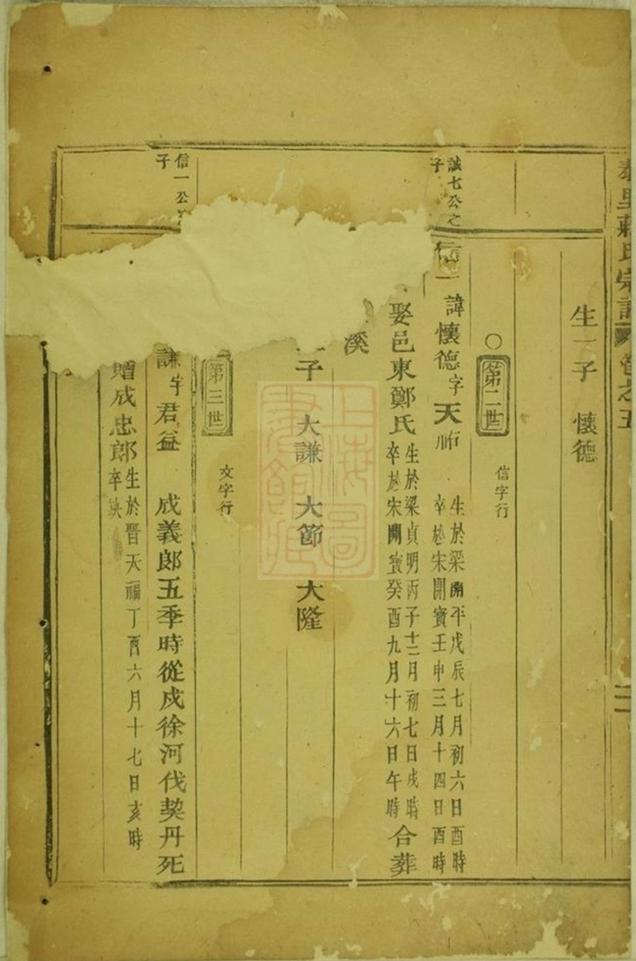 氏宗譜 卷之五
二
生一子 懷德
第二世
信字行
誠七公之子
諱懷德字天
生於梁開平戊辰七月初六日酉時
卒於宋開寶壬申三月十四日酉時
娶邑東鄭氏
生於梁貞明丙子十二月初七日戌時
卒於宋開寶癸酉九月十六日午時
合葬
溪
子 大謙 大節 大隆
第三世
文字行
信一公
子
謙字君益 成義郎五季時從戍徐河伐契丹死
贈成忠郎
生於晉天福丁酉六月十七日亥時
卒缺
上海圖書館藏